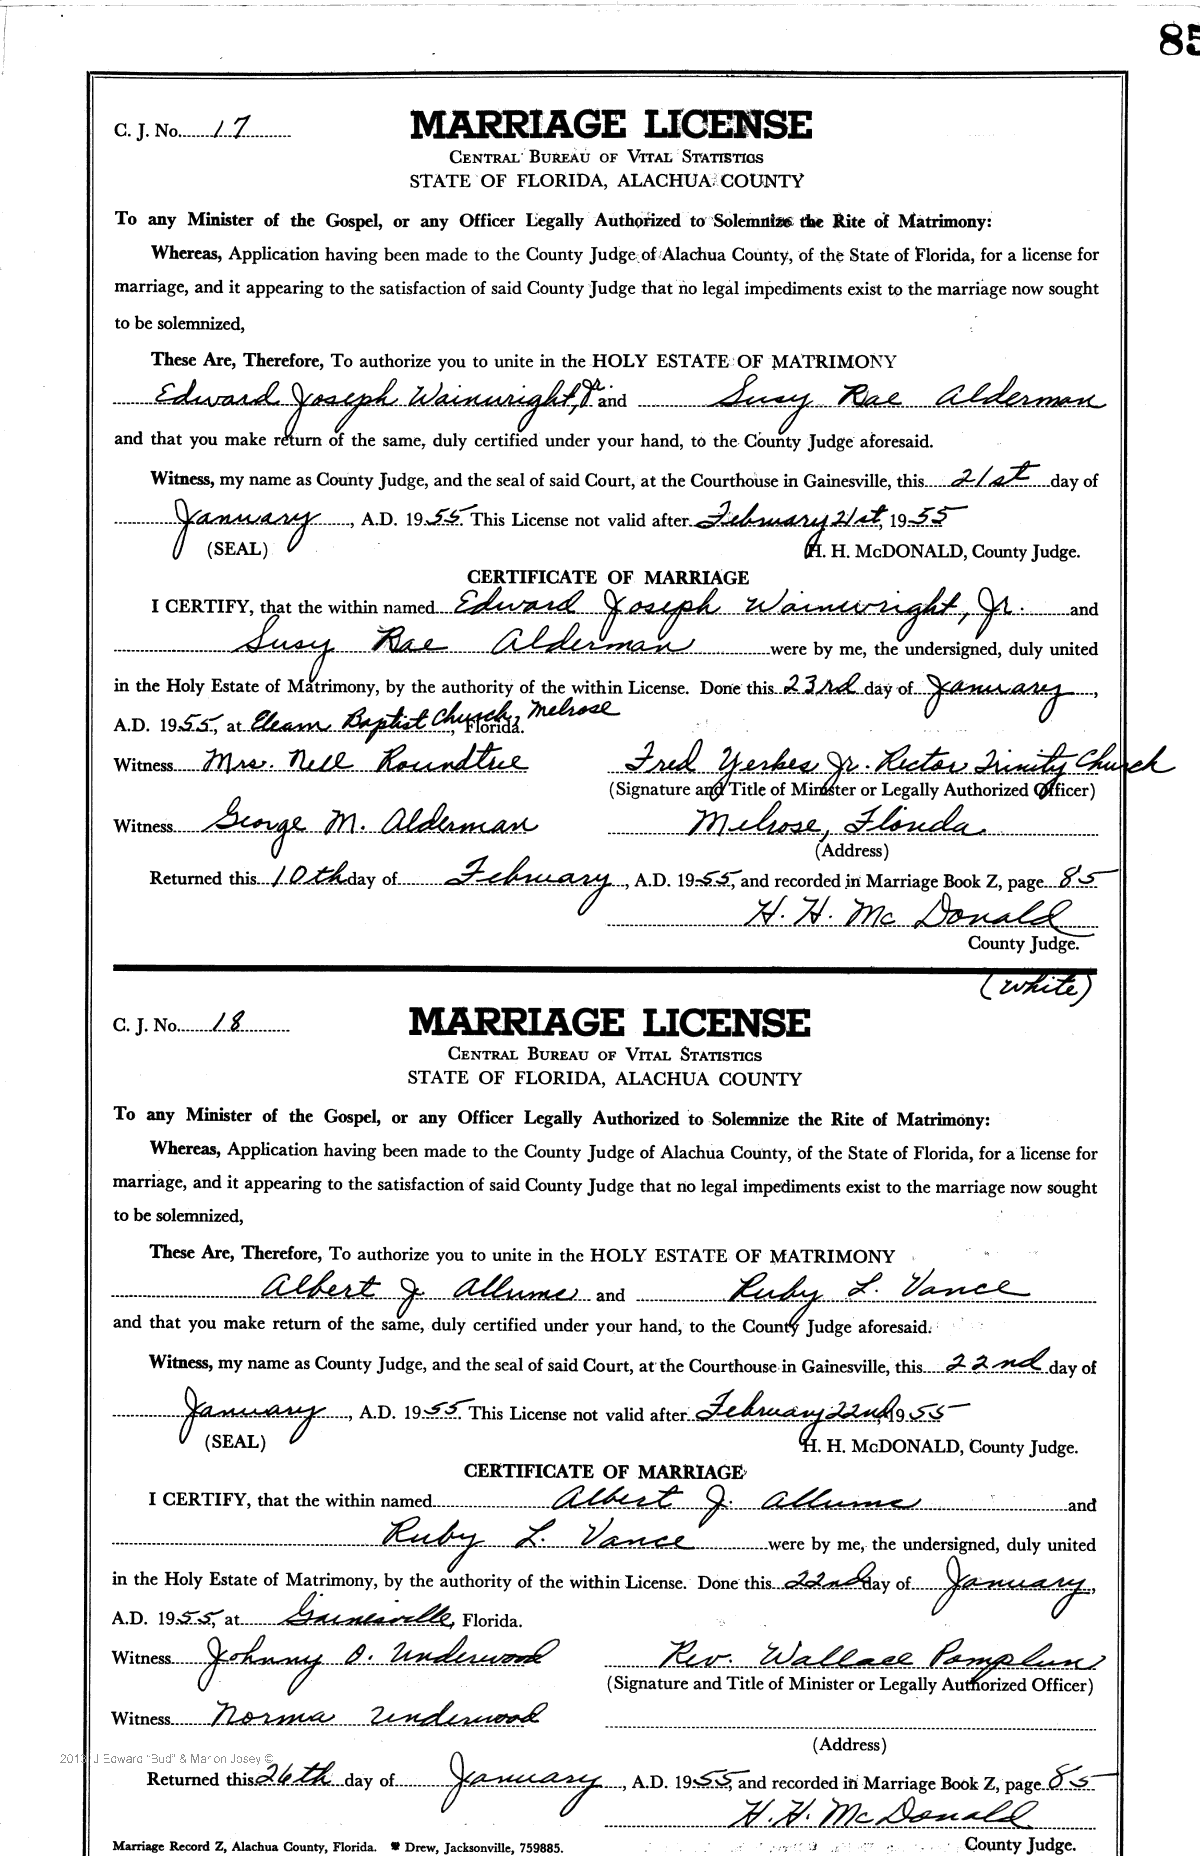 85
C. J. No. 17
MARRIAGE LICENSE
CENTRAL BUREAU OF VITAL STATISTICS
STATE OF FLORIDA, ALACHUA COUNTY
To any Minister of the Gospel, or any Officer Legally Authorized to Solemnize the Rite of Matrimony:
Whereas, Application having been made to the County Judge of Alachua County, of the State of Florida, for a license for
marriage, and it appearing to the satisfaction of said County Judge that no legal impediments exist to the marriage now sought
to be solemnized,
These Are, Therefore, To authorize you to unite in the HOLY ESTATE OF MATRIMONY
Edward Joseph Wainwright, Jr. and Susy Rae Alderman
and that you make return of the same, duly certified under your hand, to the County Judge aforesaid.
Witness, my name as County Judge, and the seal of said Court, at the Courthouse in Gainesville, this 21st day of
January, A.D. 1955. This License not valid after February 21st, 1955
(SEAL) H. H. McDONALD, County Judge.
CERTIFICATE OF MARRIAGE
I CERTIFY, that the within named Edward Joseph Wainwright, Jr. and
Susy Rae Alderman were by me, the undersigned, duly united
in the Holy Estate of Matrimony, by the authority of the within License. Done this 23rd day of January,
A.D. 1955, at Eleam Baptist Church, Melrose, Florida.
Witness Mrs. Nell Roundtree Fred Yerkes Jr. Rector Trinity Church
(Signature and Title of Minister or Legally Authorized Officer)
Witness George M. Alderman Melrose, Florida.
(Address)
Returned this 10th day of February, A.D. 1955, and recorded in Marriage Book Z, page 85
H. H. McDonald
County Judge.
(White)
C. J. No. 18
MARRIAGE LICENSE
CENTRAL BUREAU OF VITAL STATISTICS
STATE OF FLORIDA, ALACHUA COUNTY
To any Minister of the Gospel, or any Officer Legally Authorized to Solemnize the Rite of Matrimony:
Whereas, Application having been made to the County Judge of Alachua County, of the State of Florida, for a license for
marriage, and it appearing to the satisfaction of said County Judge that no legal impediments exist to the marriage now sought
to be solemnized,
These Are, Therefore, To authorize you to unite in the HOLY ESTATE OF MATRIMONY
Albert J. Allums and Ruby L. Vance
and that you make return of the same, duly certified under your hand, to the County Judge aforesaid.
Witness, my name as County Judge, and the seal of said Court, at the Courthouse in Gainesville, this 22nd day of
January, A.D. 1955. This License not valid after February 22nd, 1955
(SEAL) H. H. McDONALD, County Judge.
CERTIFICATE OF MARRIAGE
I CERTIFY, that the within named Albert J. Allums and
Ruby L. Vance were by me, the undersigned, duly united
in the Holy Estate of Matrimony, by the authority of the within License. Done this 22nd day of January,
A.D. 1955, at Gainesville, Florida.
Witness Johnny O. Underwood Rev. Wallace Pamplun
(Signature and Title of Minister or Legally Authorized Officer)
Witness Norma Underwood
(Address)
2013 J Edward "Bud" & Marion Josey ©
Returned this 26th day of January, A.D. 1955 and recorded in Marriage Book Z, page 85
H. H. McDonald
Marriage Record Z, Alachua County, Florida. Drew, Jacksonville, 759885. County Judge.